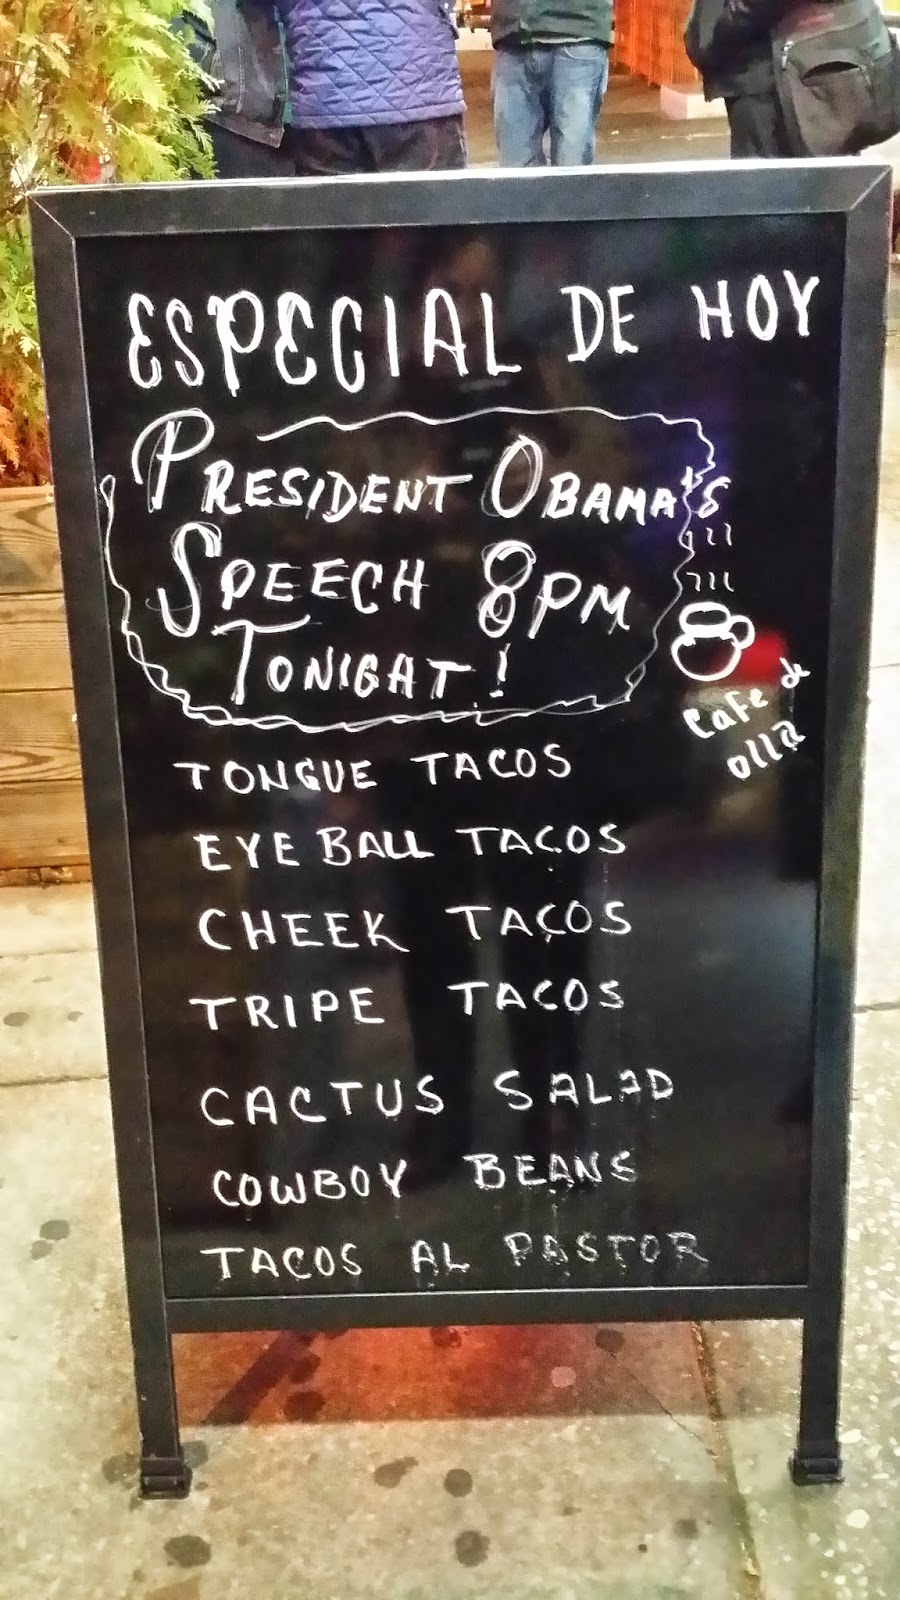 ESPECIAL DE HOY
PRESIDENT OBAMA'S
SPEECH 8PM
TONIGHT!
Cafe de
olla
TONGUE TACOS
EYE BALL TACOS
CHEEK TACOS
TRIPE TACOS
CACTUS SALAD
COWBOY BEANS
TACOS AL PASTOR